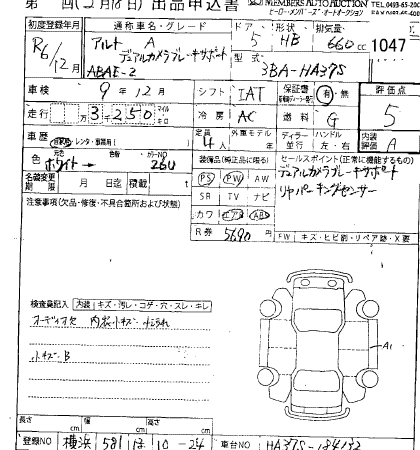 第 回(2月8日) 出品申込書 MEMBERS AUTO AUCTION TEL.0493-65-200
ヒーロー・メンバーズ・オートオークション
初度登録年月 通称車名・グレード ドア 形状 排気量
R6/12月 アルト A 5 HB 660cc 1047
デュアルカメラブレーキサポート
ABAE-2 3BA-HA37S
車検 9年12月 シフト IAT 保証書 有・無 評価点
走行 3千250 マイル キロ 冷房 AC 燃料 G 5
車歴 自家用 レンタ・事業用 定員 4人 外車モデル 年 ディーラー 並行 ハンドル 左・右 内装評価 A
色 元色 ホワイト 色替 カラーNO 26U
装備品(純正品に限る) セールスポイント(正常に機能するもの)
名義変更期限 月 日迄 積載 t
PS PW AW デュアルカメラブレーキサポート
SR TV ナビ リヤパーキングセンサー
カワ エアB ABS
注意事項(欠品・修復・不具合箇所および状態)
R券 5690円
FW キズ・ヒビ割・リペア跡・X要
検査員記入 内装 キズ・汚レ・コゲ・穴・スレ・キレ
オーディオ欠 内装小キズ・小汚れ
A1
小キズ・B
長さ cm 幅 cm 高さ cm
登録NO 横浜 581 ほ 10-24 車台NO HA37S-184132